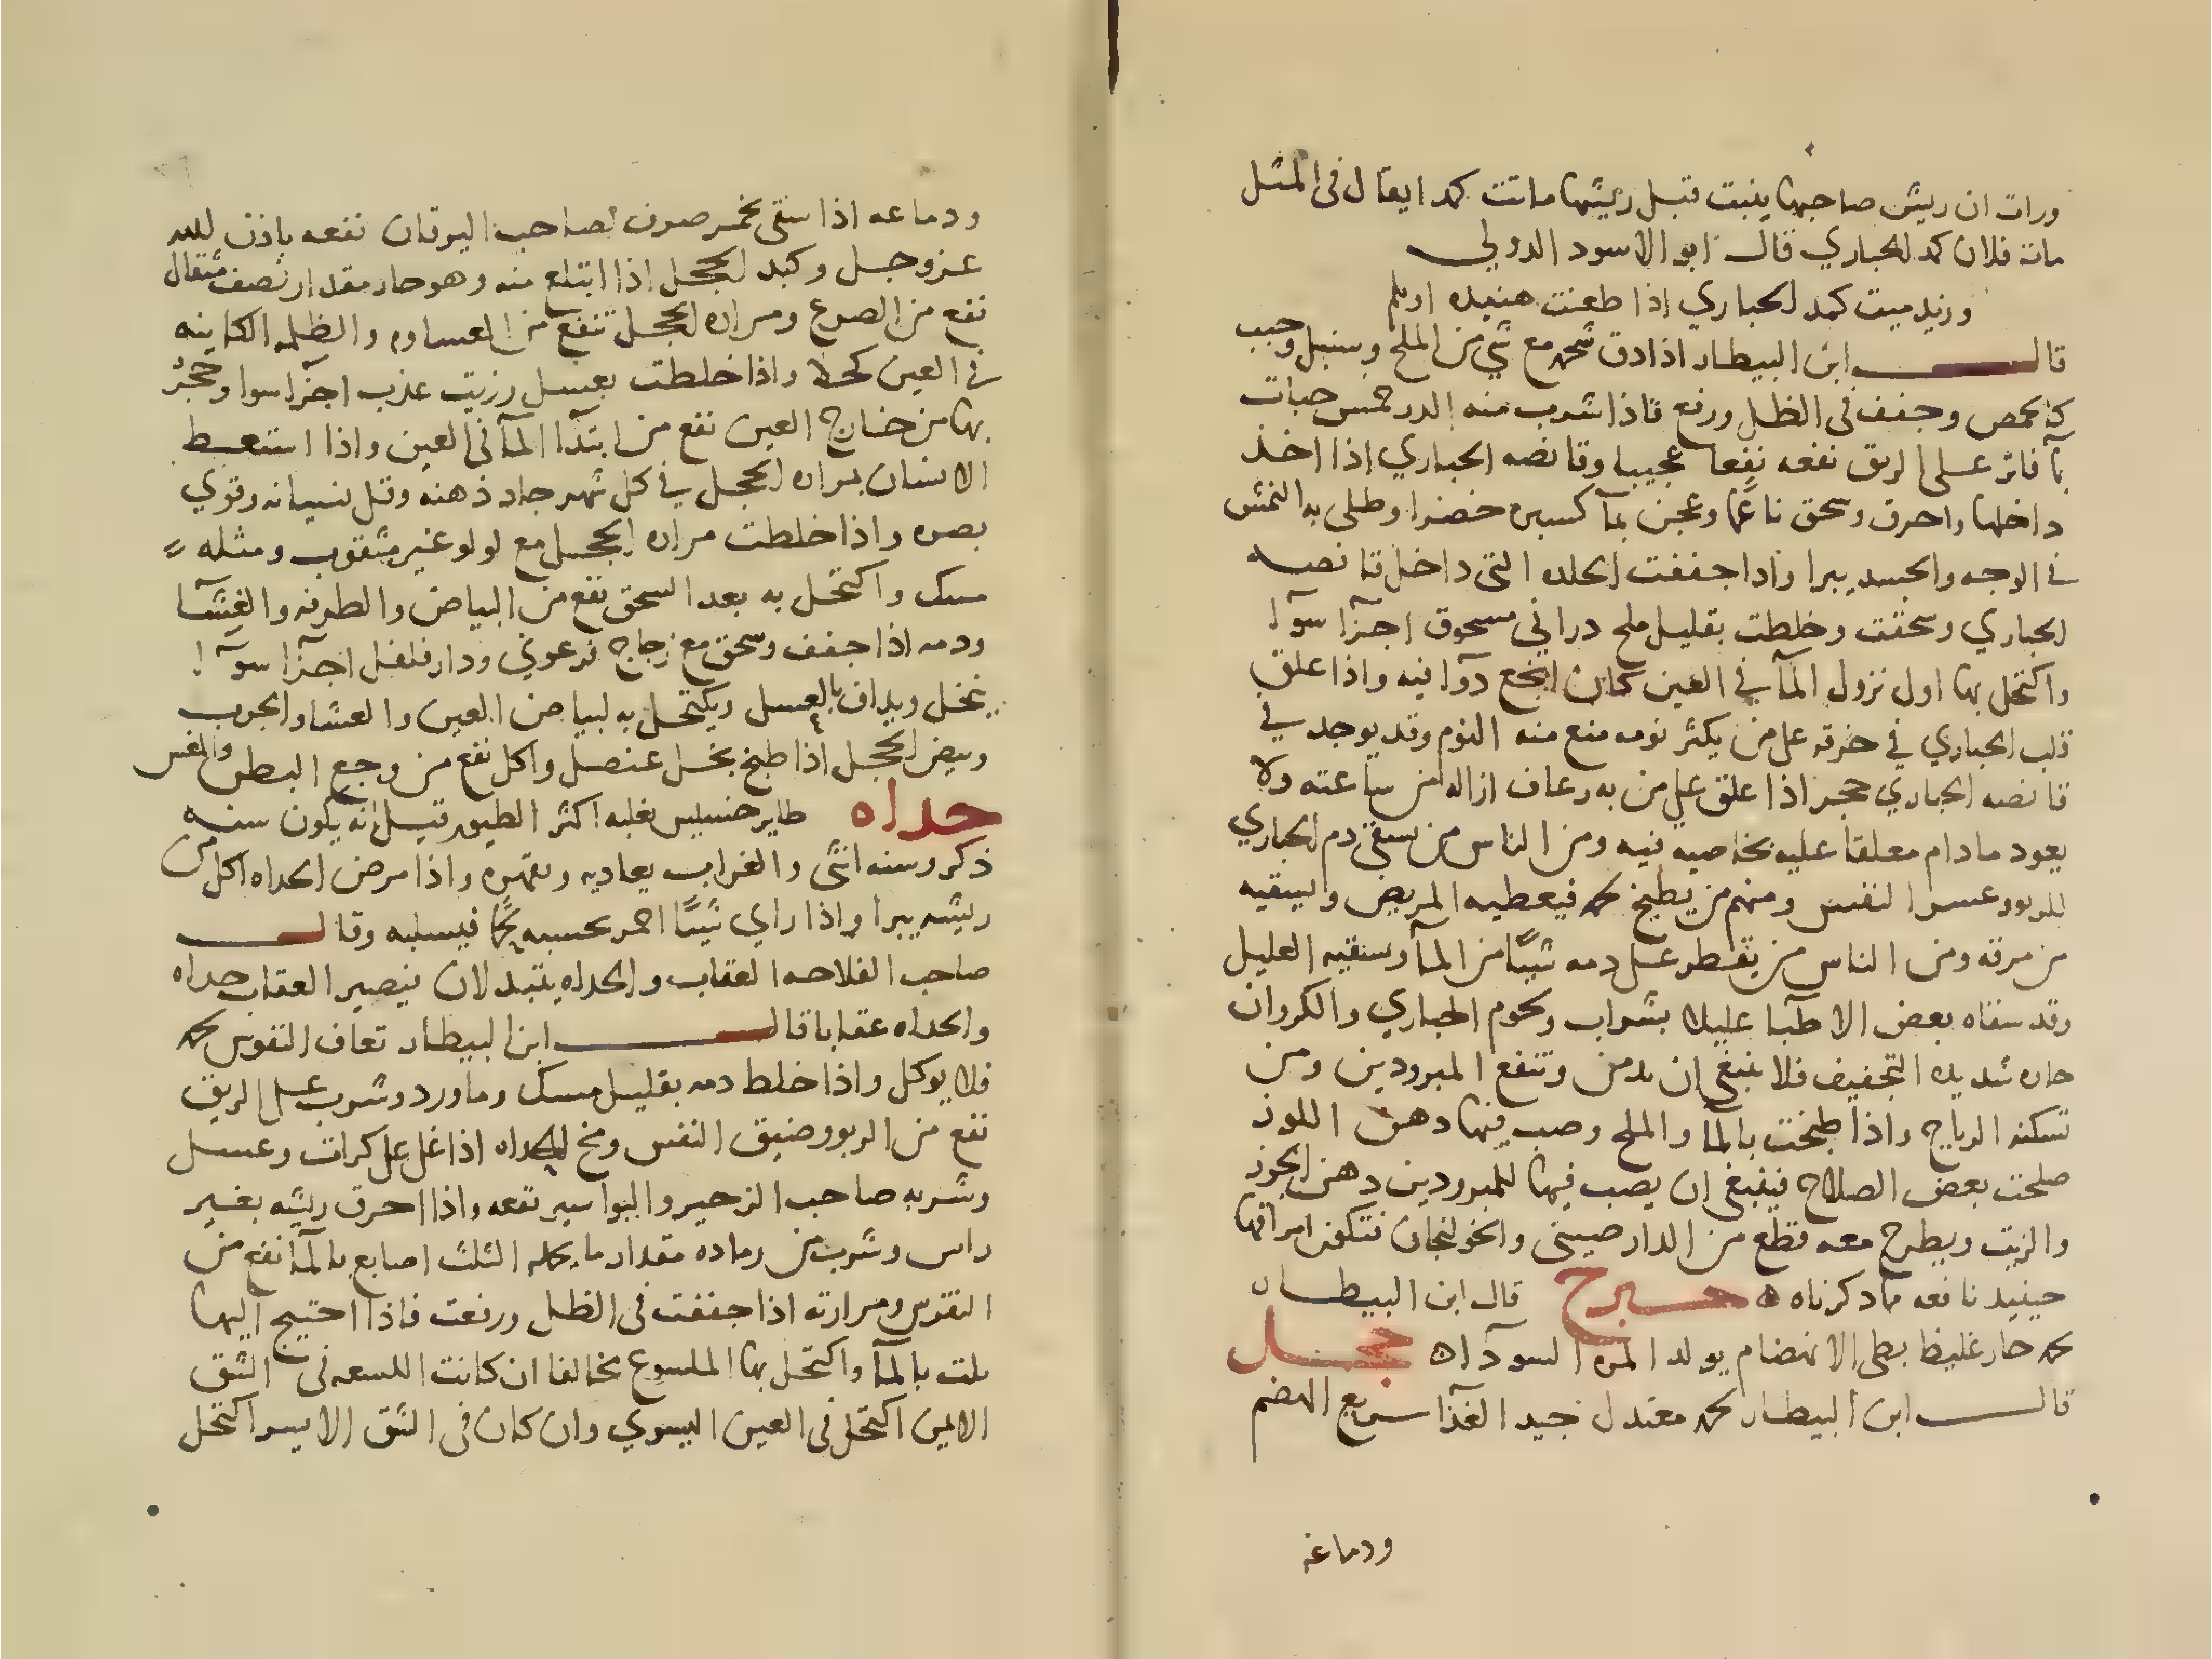 ورات ان ريش صاحبها ينبت قبل ريشها ماتت كمدا يقال فى المثل
مات فلان كمد الحباري قال ابو الاسود الدولي
وزيد ميت كمد الحباري اذا طعنت هنيده اويلم
قال ابن البيطار اذا دق شحمه مع شي من الملح وسنبل وحبب
كالحمص وجفف فى الظل ورفع فاذا شرب منه خمس حبات
بمآ فاتر على الريق نفعه نفعا عجيبا وقانصه الحباري اذا اخذ
داخلها واحرق وسحق ناعما وعجن بمآ كسبره خضرا وطلى به النمش
في الوجه والجسد يبرا واذا جففت الجلده التى داخل قانصه
الحباري وسحقت وخلطت بقليل ملح دراني مسحوق اجزآ سوآ
واكتحل بها اول نزول المآ في العين كان انجع دوآ فيه واذا علق
قلب الحباري في خرقه على من يكثر نومه منع منه النوم وقد يوجد في
قانصه الحباري حجر اذا علق على من به رعاف ازاله من ساعته ولا
يعود مادام معلقا عليه بخاصيه فيه ومن الناس من يسقى دم الحباري
للربو وعسر النفس ومنهم من يطبخ لحمه فيعطيه المريض ويسقيه
من مرقه ومن الناس من يقطر على دمه شيئا من المآ وسقيه العليل
وقد سقاه بعض الاطبا عليلا بشراب ولحوم الحباري والكروان
حاره شديده التجفيف فلا ينبغى ان يدمن وتنفع المبرودين ومن
تسكنه الرياح واذا طبخت بالمآ والملح وصب فيها دهن اللوز
صلحت بعض الصلاح فينبغى ان يصب فيها للمبرودين دهن الجوز
والزيت ويطرح معه قطع من الدارصينى والخولنجان فتكون امراقها
حينيد نافعه لما ذكرناه ه حبرج قال ابن البيطار
لحمه حار غليظ بطى الانهضام يولد المره السودآ ه حجل
قال ابن البيطار لحمه معتدل جيد الغذآ سريع الهضم
ودماغه
ودماغه اذا سقى بخمر صرف لصاحب اليرقان نفعه باذن الله
عز وجل وكبد الحجل اذا ابتلع منه وهو حار مقدار نصف مثقال
نفع من الصرع ومراره الحجل تنفع من الغساوه والظلمه الكاينه
في العين كحلا واذا خلطت بعسل وزيت عذب اجزآ سوا وحجر
بها من خارج العين نفع من ابتدآ المآ فى العين واذا استعط
الانسان بمراره الحجل في كل شهر جاد ذهنه وقل نسيانه وقوي
بصره واذا خلطت مراره الحجل مع لولو غير مثقوب ومثله
مسك واكتحل به بعد السحق نفع من البياض والطرفه والغشآ
ودمه اذا جفف وسحق مع زجاج فرعوني ودار فلفل اجزآ سوآ
ينخل ويداف بالعسل ويكتحل به لبياض العين والعشا والجرب
وبيض الحجل اذا طبخ بخل عنصل واكل نفع من وجع البطن والمغس
حداه طاير خسيس يغلبه اكثر الطيور قيل انه يكون سنه
ذكر وسنه انثى والغراب يعاديه ويقهره واذا مرض الحداه اكل من
ريشه يبرا واذا راي شيئا احمر يحسبه لحما فيسلبه وقال
صاحب الفلاحه العقاب والحداه يتبدلان فيصير العقاب حداه
والحداه عقابا قال ابن البيطار تعاف النفوس لحمه
فلا يوكل واذا خلط دمه بقليل مسك وماورد وشرب على الريق
نفع من الربو وضيق النفس ومخ الحداه اذا غلى على كرات وعسل
وشربه صاحب الزحير والبواسير نفعه واذا احرق ريشه بغير
راس وشرب من رماده مقدار ما يحمله الثلث اصابع بالمآ نفع من
النقرس ومرارته اذا جففت فى الظل ورفعت فاذا احتيج اليها
بلت بالمآ واكتحل بها الملسوع مخالفا ان كانت اللسعه فى الشق
الايمن اكتحل فى العين اليسري وان كان فى الشق الايسر اكتحل